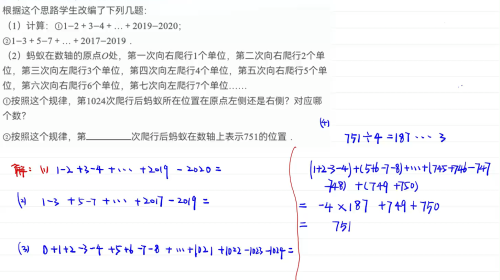 根据这个思路学生改编了下列几题:
（1）计算：①1−2＋3−4＋…＋2019−2020;
②1−3＋5−7＋…＋2017−2019．
（2）蚂蚁在数轴的原点O处，第一次向右爬行1个单位，第二次向右爬行2个单
位，第三次向左爬行3个单位，第四次向左爬行4个单位，第五次向右爬行5个单
位，第六次向右爬行6个单位，第七次向左爬行7个单位……
①按照这个规律，第1024次爬行后蚂蚁所在位置在原点左侧还是右侧？对应哪
个数？
②按照这个规律，第________次爬行后蚂蚁在数轴上表示751的位置．
解: (1) 1-2+3-4+…+2019-2020=
(2) 1-3+5-7+…+2017-2019=
(3) 0+1+2-3-4+5+6-7-8+…+1021+1022-1023-1024=
(4)
751÷4=187…3
(1+2-3-4)+(5+6-7-8)+…+(745+746-747
-748)+(749+750)
= -4×187+749+750
= 751